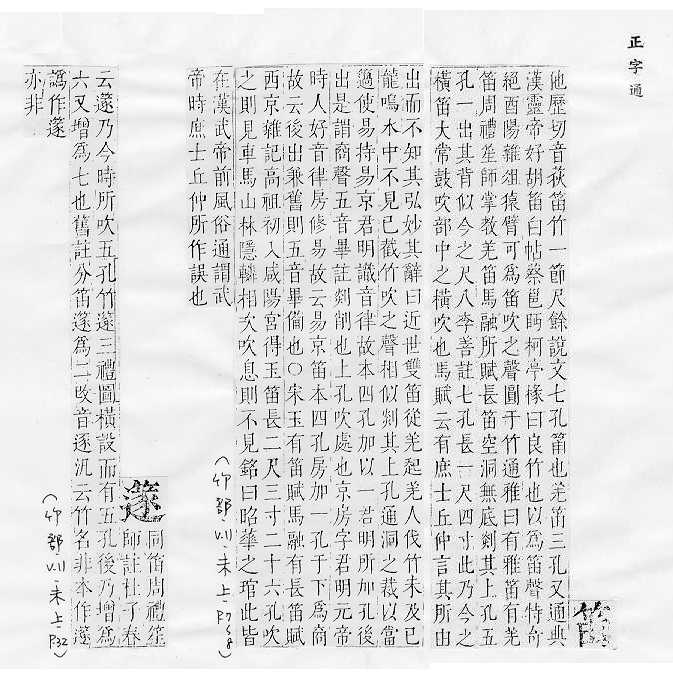 正字通
笛
他歷切音荻笛竹一節尺餘說文七孔筩也羌笛三孔又通典
漢靈帝好胡笛白帖蔡邕眄柯亭椽曰良竹也以為笛聲特奇
絕酉陽雜俎猿臂可為笛吹之聲圓于竹通雅曰有雅笛有羌
笛周禮笙師掌教羌笛馬融所賦長笛空洞無底剡其上孔五
孔一出其背似今之尺八李善註七孔長一尺四寸此乃今之
橫笛太常鼓吹部中之橫吹也馬賦云有庶士丘仲言其所由
出而不知其弘妙其辭曰近世雙笛從羌起羌人伐竹未及已
龍鳴水中不見已截竹吹之聲相似剡其上孔通洞之裁以當
簻使易持易京君明識音律故本四孔加以一君明所加孔後
出是謂商聲五音畢註剡削也上孔吹處也京房字君明元帝
時人好音律房修易故云易京笛本四孔房加一孔于下為商
故云後出兼舊則五音畢備也○宋玉有笛賦馬融有長笛賦
西京雜記高祖初入咸陽宮得玉笛長二尺三寸二十六孔吹
之則見車馬山林隱轔相次吹息則不見銘曰昭華之琯此皆
在漢武帝前風俗通謂武
帝時庶士丘仲所作誤也
(竹部、川、未上、P.7、8)
篴
同笛周禮笙
師註杜子春
云篴乃今時所吹五孔竹篴三禮圖橫設而有五孔後乃增為
六又增為七也舊註分笛篴為二改音逐汎云竹名非本作篴
譌作篴
亦非
(竹部、川、未上、P.32)